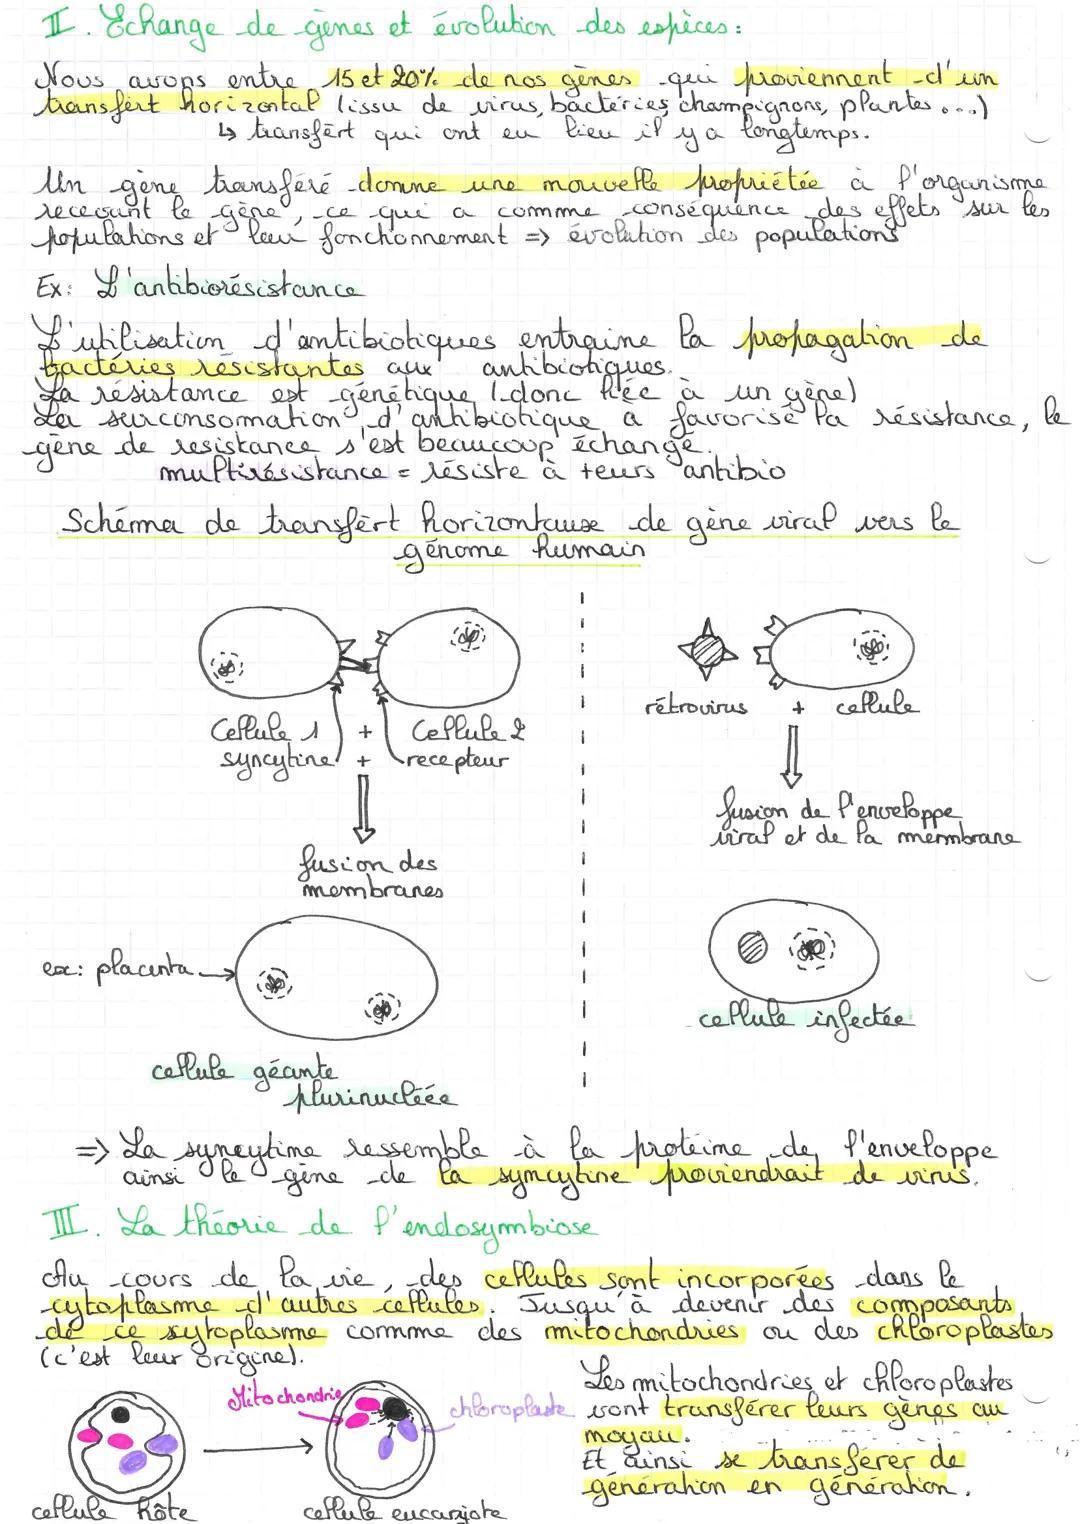 II. Echange de gènes et évolution des espèces :
Nous avons entre 15 et 20% de nos gènes qui proviennent d'un
transfert horizontal (issu de virus, bactéries, champignons, plantes ...)
↳ transfert qui ont eu lieu il y a longtemps.
Un gène transféré donne une nouvelle propriétée à l'organisme
recevant le gène, ce qui a comme conséquence des effets sur les
populations et leur fonctionnement => évolution des populations
Ex: L'antibiorésistance
L'utilisation d'antibiotiques entraine la propagation de
bactéries résistantes aux antibiotiques.
La résistance est génétique (donc liée à un gène)
La surconsomation d'antibiotique a favorisé la résistance, le
gène de resistance s'est beaucoup échangé.
multirésistance = résiste à +eurs antibio
Schéma de transfert horizontause de gène viral vers le
génome humain
Cellule 1 + Cellule 2
syncytine + recepteur
fusion des
membranes
ex: placenta
cellule géante
plurinucléée
rétrovirus + cellule
fusion de l'enveloppe
viral et de la membrane
cellule infectée
=> La syncytine ressemble à la protéine de l'enveloppe
ainsi le gène de la syncytine proviendrait de virus.
III. La théorie de l'endosymbiose
Au cours de la vie, des cellules sont incorporées dans le
cytoplasme d'autres cellules. Jusqu'à devenir des composants
de ce sytoplasme comme des mitochondries ou des chloroplastes
(c'est leur origine).
Mitochondrie
chloroplaste
cellule hôte
cellule eucaryote
Les mitochondries et chloroplastes
vont transférer leurs gènes au
noyau.
Et ainsi se transférer de
génération en génération.